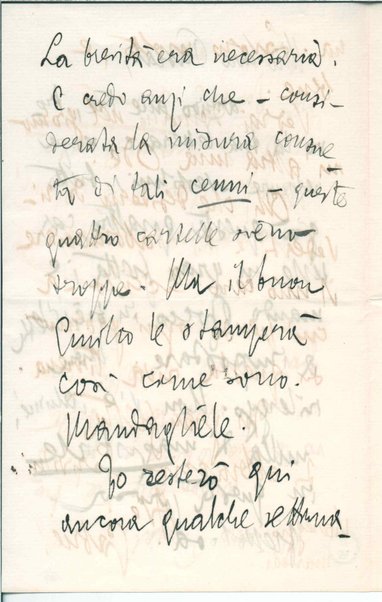 La brevità era necessaria.
E credo anzi che – consi-
derata la misura consue
ta di tali cenni – queste
quattro cartelle sieno
troppe. Ma il buon
le stamperà
così come sono.
Mandagliele.
Io resterò qui
ancora qualche settima-